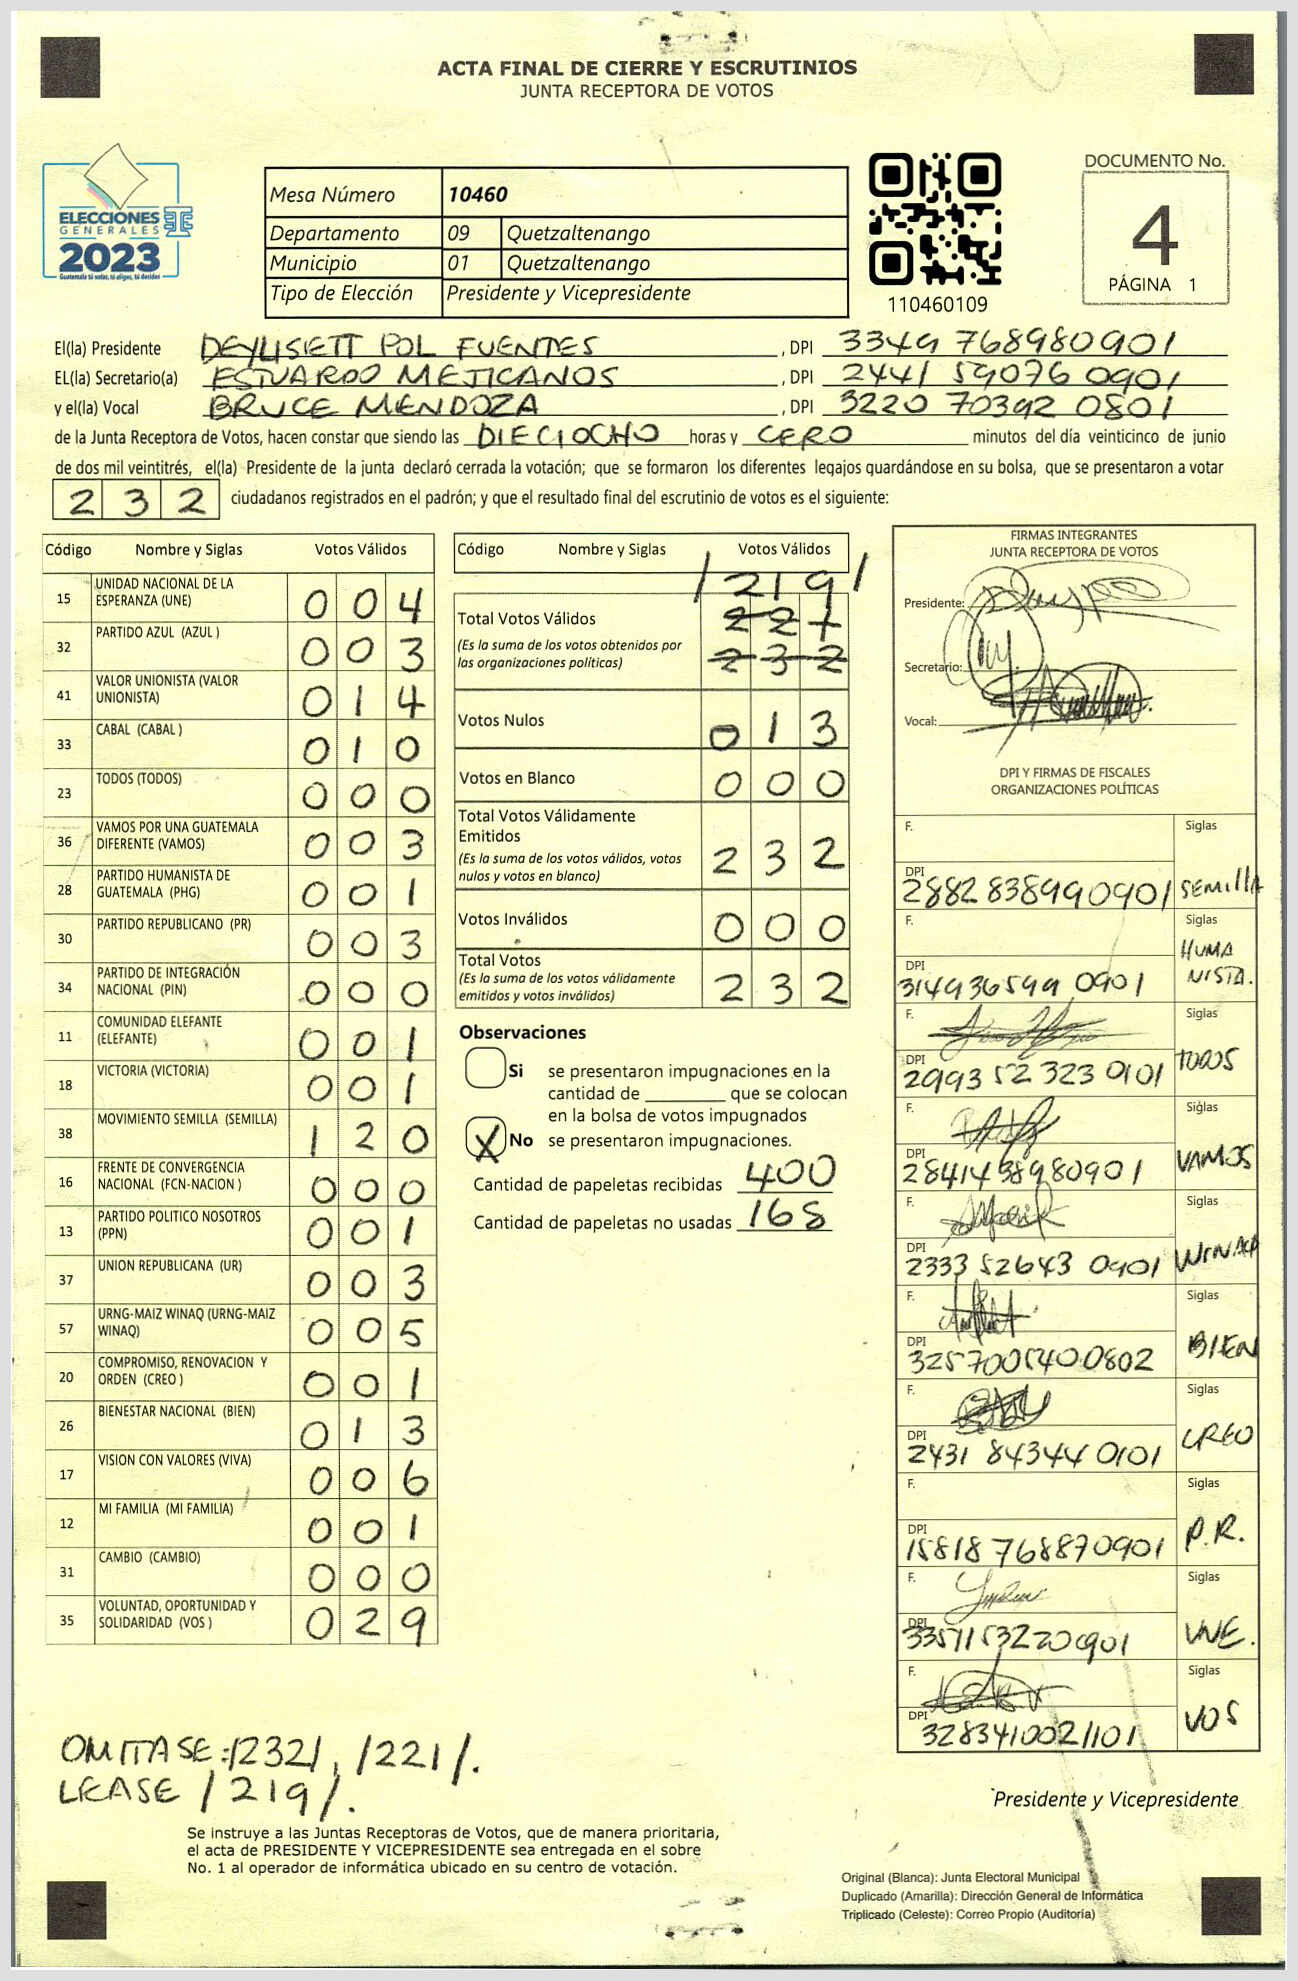 ACTA FINAL DE CIERRE Y ESCRUTINIOS
JUNTA RECEPTORA DE VOTOS
ELECCIONES
GENERALES
2023
Guatemala tú votas, tú eliges, tú decides
Mesa Número 10460
Departamento 09 Quetzaltenango
Municipio 01 Quetzaltenango
Tipo de Elección Presidente y Vicepresidente
110460109
DOCUMENTO No.
4
PÁGINA 1
El(la) Presidente DEYLISETT POL FUENTES, DPI 3349 768980901
EL(la) Secretario(a) ESTUARDO MEJICANOS, DPI 2441 59076 0901
y el(la) Vocal BRUCE MENDOZA, DPI 3220 70392 0801
de la Junta Receptora de Votos, hacen constar que siendo las DIECIOCHO horas y CERO minutos del día veinticinco de junio
de dos mil veintitrés, el(la) Presidente de la junta declaró cerrada la votación; que se formaron los diferentes legajos guardándose en su bolsa, que se presentaron a votar
232 ciudadanos registrados en el padrón; y que el resultado final del escrutinio de votos es el siguiente:
Código Nombre y Siglas Votos Válidos
15 UNIDAD NACIONAL DE LA ESPERANZA (UNE) 004
32 PARTIDO AZUL (AZUL ) 003
41 VALOR UNIONISTA (VALOR UNIONISTA) 014
33 CABAL (CABAL ) 010
23 TODOS (TODOS) 000
36 VAMOS POR UNA GUATEMALA DIFERENTE (VAMOS) 003
28 PARTIDO HUMANISTA DE GUATEMALA (PHG) 001
30 PARTIDO REPUBLICANO (PR) 003
34 PARTIDO DE INTEGRACIÓN NACIONAL (PIN) 000
11 COMUNIDAD ELEFANTE (ELEFANTE) 001
18 VICTORIA (VICTORIA) 001
38 MOVIMIENTO SEMILLA (SEMILLA) 120
16 FRENTE DE CONVERGENCIA NACIONAL (FCN-NACION ) 000
13 PARTIDO POLITICO NOSOTROS (PPN) 001
37 UNION REPUBLICANA (UR) 003
57 URNG-MAIZ WINAQ (URNG-MAIZ WINAQ) 005
20 COMPROMISO, RENOVACION Y ORDEN (CREO ) 001
26 BIENESTAR NACIONAL (BIEN) 013
17 VISION CON VALORES (VIVA) 006
12 MI FAMILIA (MI FAMILIA) 001
31 CAMBIO (CAMBIO) 000
35 VOLUNTAD, OPORTUNIDAD Y SOLIDARIDAD (VOS ) 029
Código Nombre y Siglas Votos Válidos
/219/
Total Votos Válidos 221
(Es la suma de los votos obtenidos por las organizaciones políticas) 232
Votos Nulos 013
Votos en Blanco 000
Total Votos Válidamente Emitidos
(Es la suma de los votos válidos, votos nulos y votos en blanco) 232
Votos Inválidos 000
Total Votos
(Es la suma de los votos válidamente emitidos y votos inválidos) 232
Observaciones
Si se presentaron impugnaciones en la
cantidad de ________ que se colocan
en la bolsa de votos impugnados
X No se presentaron impugnaciones.
Cantidad de papeletas recibidas 400
Cantidad de papeletas no usadas 168
FIRMAS INTEGRANTES
JUNTA RECEPTORA DE VOTOS
Presidente:
Secretario:
Vocal:
DPI Y FIRMAS DE FISCALES
ORGANIZACIONES POLÍTICAS
F. Siglas
DPI 2882 838990901 SEMILLA
F. Siglas
DPI 314936599 0901 HUMANISTA.
F. Siglas
DPI 2993 52 323 0101 TODOS
F. Siglas
DPI 284143898090 1 VAMOS
F. Siglas
DPI 2333 52643 0901 WINAQ
F. Siglas
DPI 3257005400802 BIEN
F. Siglas
DPI 2431 84344 0101 CREO
F. Siglas
DPI 15818 768870901 P.R.
F. Siglas
DPI 3351153220901 UNE.
F. Siglas
DPI 3283410021101 VOS
OMITASE:/232/, /221/.
LEASE /219/.
Presidente y Vicepresidente
Se instruye a las Juntas Receptoras de Votos, que de manera prioritaria,
el acta de PRESIDENTE Y VICEPRESIDENTE sea entregada en el sobre
No. 1 al operador de informática ubicado en su centro de votación.
Original (Blanca): Junta Electoral Municipal
Duplicado (Amarilla): Dirección General de Informática
Triplicado (Celeste): Correo Propio (Auditoría)